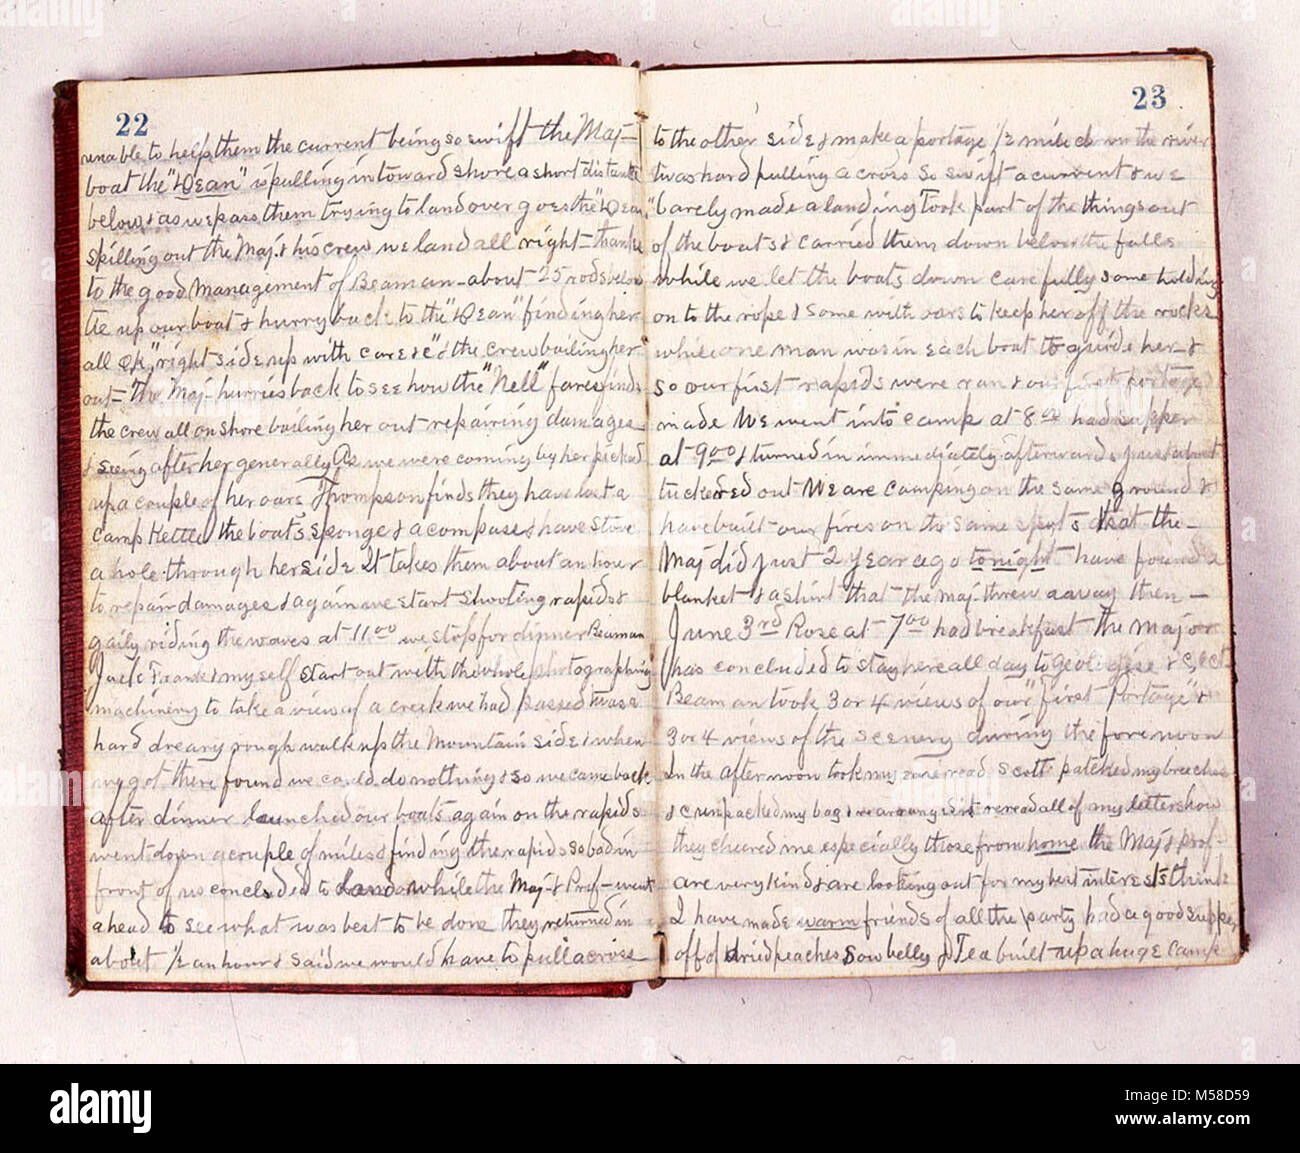 22
unable to help them the current being so swift the Maj-
boat the "Dean" is pulling in toward shore a short distance
below & as we pass them trying to land over goes the "Dean"
spilling out the Maj. & his crew we land all right - thanks
to the good management of Beaman - about 25 rods below
tie up our boat & hurry back to the "Dean" finding her
all OK, "right side up with care &c" & the crew bailing her
out - The Maj- hurries back to see how the "Nell" fares finds
the crew all on shore bailing her out - repairing damages
& seeing after her generally As we were coming by her picked
up a couple of her oars Thompson finds they have lost a
Camp Kettle the boat's sponge & a compass & have stove
a hole through her side It takes them about an hour
to repair damages & again we start shooting rapids &
gaily riding the waves at 11 00 we stop for dinner Beaman
Jack Frank & myself start out with the whole photographing
machinery to take a view of a creek we had passed twas a
hard dreary rough walk up the Mountain side & when
we got there found we could do nothing & so we came back,
after dinner launched our boats again on the rapids
went down a couple of miles & finding the rapids so bad in
front of us concluded to land while the Maj- & Prof- went
ahead to see what was best to be done they returned in
about 1/2 an hour & said we would have to pull acrose
23
to the other side & make a portage 1/2 mile down the river
twas hard pulling across so swift a current & we
barely made a landing Took part of the things out
of the boats & carried them down below the falls
while we let the boats down carefully some holding
on to the rope & some with oars to keep her off the rocks
while one man was in each boat to guide her - &
so our first rapids were ran & our first portage
made We went into camp at 8 00 had supper
at 9 00 & turned in immediately afterwards just about
tuckered out We are camping on the same ground &
have built our fires on the same spots that the -
Maj did just 2 year ago tonight have found a
blanket & a shirt that the Maj- threw away then -
June 3rd Rose at 7 00 had breakfast the Major
has concluded to stay here all day to Geologise &c
Beaman took 3 or 4 views of our "first Portage" &
3 or 4 views of the scenery during the forenoon
In the afternoon took my read Scott patched my breeches
& unpacked my bag & rearranged it reread all of my letters how
they cheered me especially those from home the Maj & Prof-
are very kind & are looking out for my best interests think
I have made warm friends of all the party had a good supper
off of dried peaches Sow belly & Tea built up a huge camp
alamy
M58D59
www.alamy.com